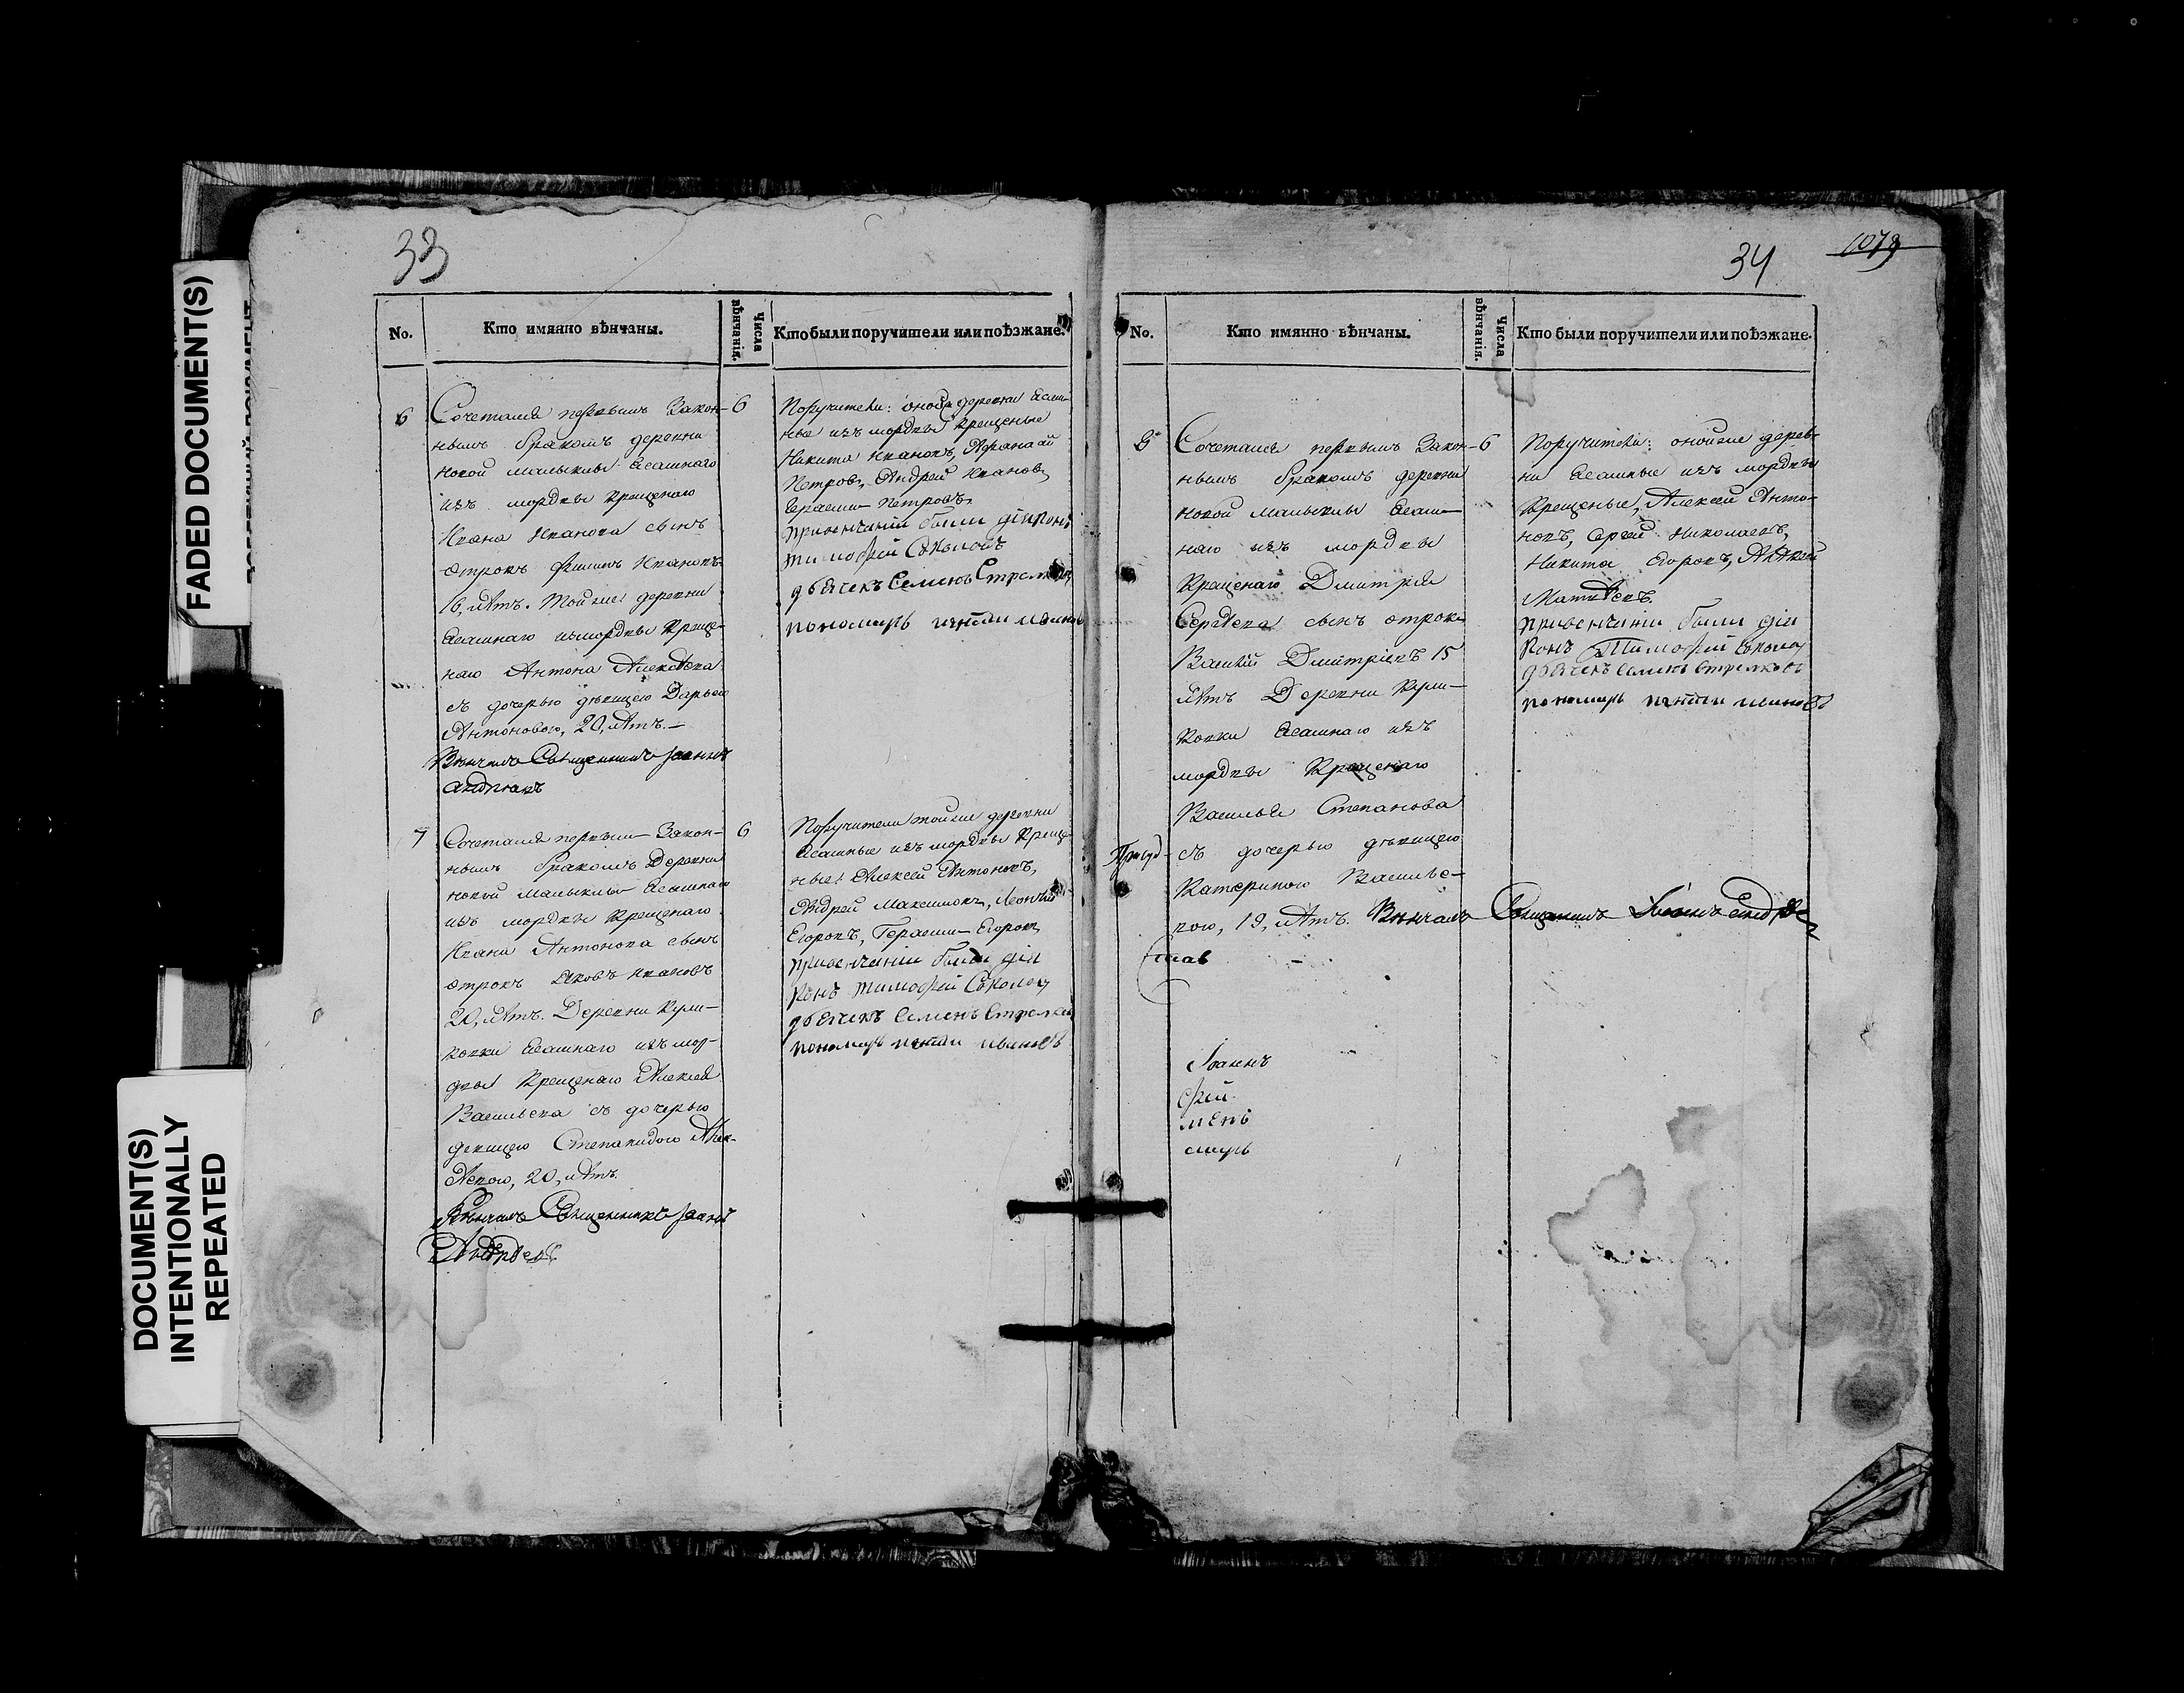 FADED DOCUMENT(S)
DOCUMENT(S)
INTENTIONALLY
REPEATED
33
No.
Кто имянно вѣнчаны.
Числа вѣнчанія.
Кто были поручители или поѣзжане.
6
Сочетался первымъ Закон-
6
нымъ бракомъ деревни
новой малыклы Ясашнаго
изъ мордвы крещенаго
Ивана Иванова сынъ
отрокъ Филипъ Ивановъ
16, лѣтъ. Тойже деревни
Ясашнаго измордвы креще-
наго Антона Алексѣева
съ дочерью дѣвицею Дарьею
Антоновою, 20, лѣтъ.
Вѣнчалъ Священникъ Іоаннъ
Поручители: оной деревни Ясаш-
ные изъ мордвы крещеные
Никита Ивановъ, Афанасй
Петровъ, Андрей Ивановъ,
Герасим Петровъ,
привенчании были діяконъ
тимофей Соколовъ
дьячекъ Семенъ
пономарь
7
Сочетался первым Закон-
6
нымъ бракомъ Деревни
новой Малыклы Ясашнаго
изъ мордвы крещенаго
Ивана Антонова сынъ
отрокъ Яковъ Ивановъ
20, лѣтъ. Деревни Кули-
ковки Ясашнаго изъ мор-
двы крещенаго Алексея
Васильева съ дочерью
девицею Степанидою Алек-
сѣевою, 20, лѣтъ.
Вѣнчалъ Священникъ Іоаннъ
Андрѣевъ
Поручители тойже деревни
Ясашные изъ мордвы креще-
ные: Алексей Антоновъ,
Андрей Максимовъ, Леонтей
Егоровъ, Герасим Егоровъ
привенчании были дія
конъ тимофей Соколовъ
дьячекъ Семенъ
пономарь
34
1079
No.
Кто имянно вѣнчаны.
Числа вѣнчанія.
Кто были поручители или поѣзжане.
Сочетался первымъ Закон-
6
нымъ бракомъ деревни
новой Малыклы Ясаш-
наго изъ мордвы
крещенаго Димитрія
Сергѣева сынъ отрокъ
Василій Димитріевъ 15
лѣтъ Деревни Кули-
ковки Ясашнаго изъ
мордвы крещенаго
Василья Степанова
съ дочерью дѣвицею
Катериною Василье-
вою, 19, лѣтъ. Вѣнчалъ Священникъ Іоаннъ Андрѣе
Поручители: онойже дерев-
ни Ясашные изъ мордвы
крещеные, Алексей Анто-
новъ, Сергей Николаевъ,
Никита Егоровъ, Алексей
Матвѣевъ.
привенчании были дія
конъ Тимофей Соколов
дьячекъ Семенъ
пономарь
Іоаннъ
фей
менъ
марь